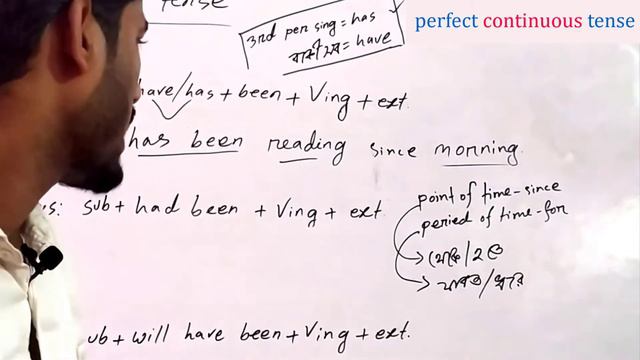 tense
perfect continuous tense
3rd per sing = has
বাকী সব = have
have/has + been + Ving + ext.
has been reading since morning.
sub + had been + Ving + ext.
point of time - since
period of time - for
থেকে/হতে
যাবত/ধরে
ub + will have been + Ving + ext.